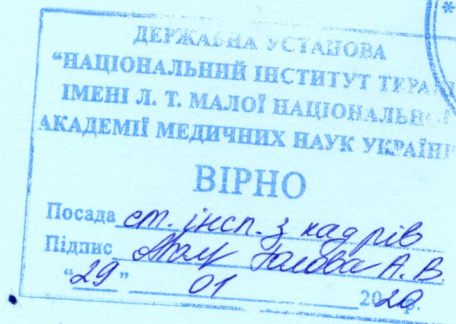 ДЕРЖАВНА УСТАНОВА
“НАЦІОНАЛЬНИЙ ІНСТИТУТ ТЕРАП
ІМЕНІ Л. Т. МАЛОЇ НАЦІОНАЛЬНОЇ
АКАДЕМІЇ МЕДИЧНИХ НАУК УКРАЇНИ
ВІРНО
Посада ст. інсп. з кадрів
Підпис А. В.
“29” 01 2020 р.